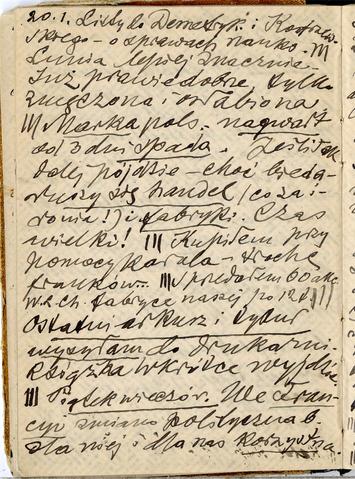 20.1. Listy do Demetryk. i Kostrzew-
skiego - o sprawach nauko. |||
Lunia lepiej znacznie.
Już prawie dobrze, tylko
zmęczona i osłabiona
||| Marka pols. na gwałt
od 3 dni spada. Jeśli tak
dalej pójdzie - choć będą
ruszy się handel (co za i-
ronia!) i fabryki. Czas
wielki! ||| Kupiłem przy
pomocy Karola - trochę
franków. ||| Sprzedałem 60 akc.
w. ch. fabryce naszej po 12 |||
Ostatni arkusz i tytuł
wysyłam do drukarni.
Książka wkrótce wyjdzie.
||| Piątek wieczór. We Fran-
cyi zmiana polityczna b.
dla niej i dla nas korzystna.